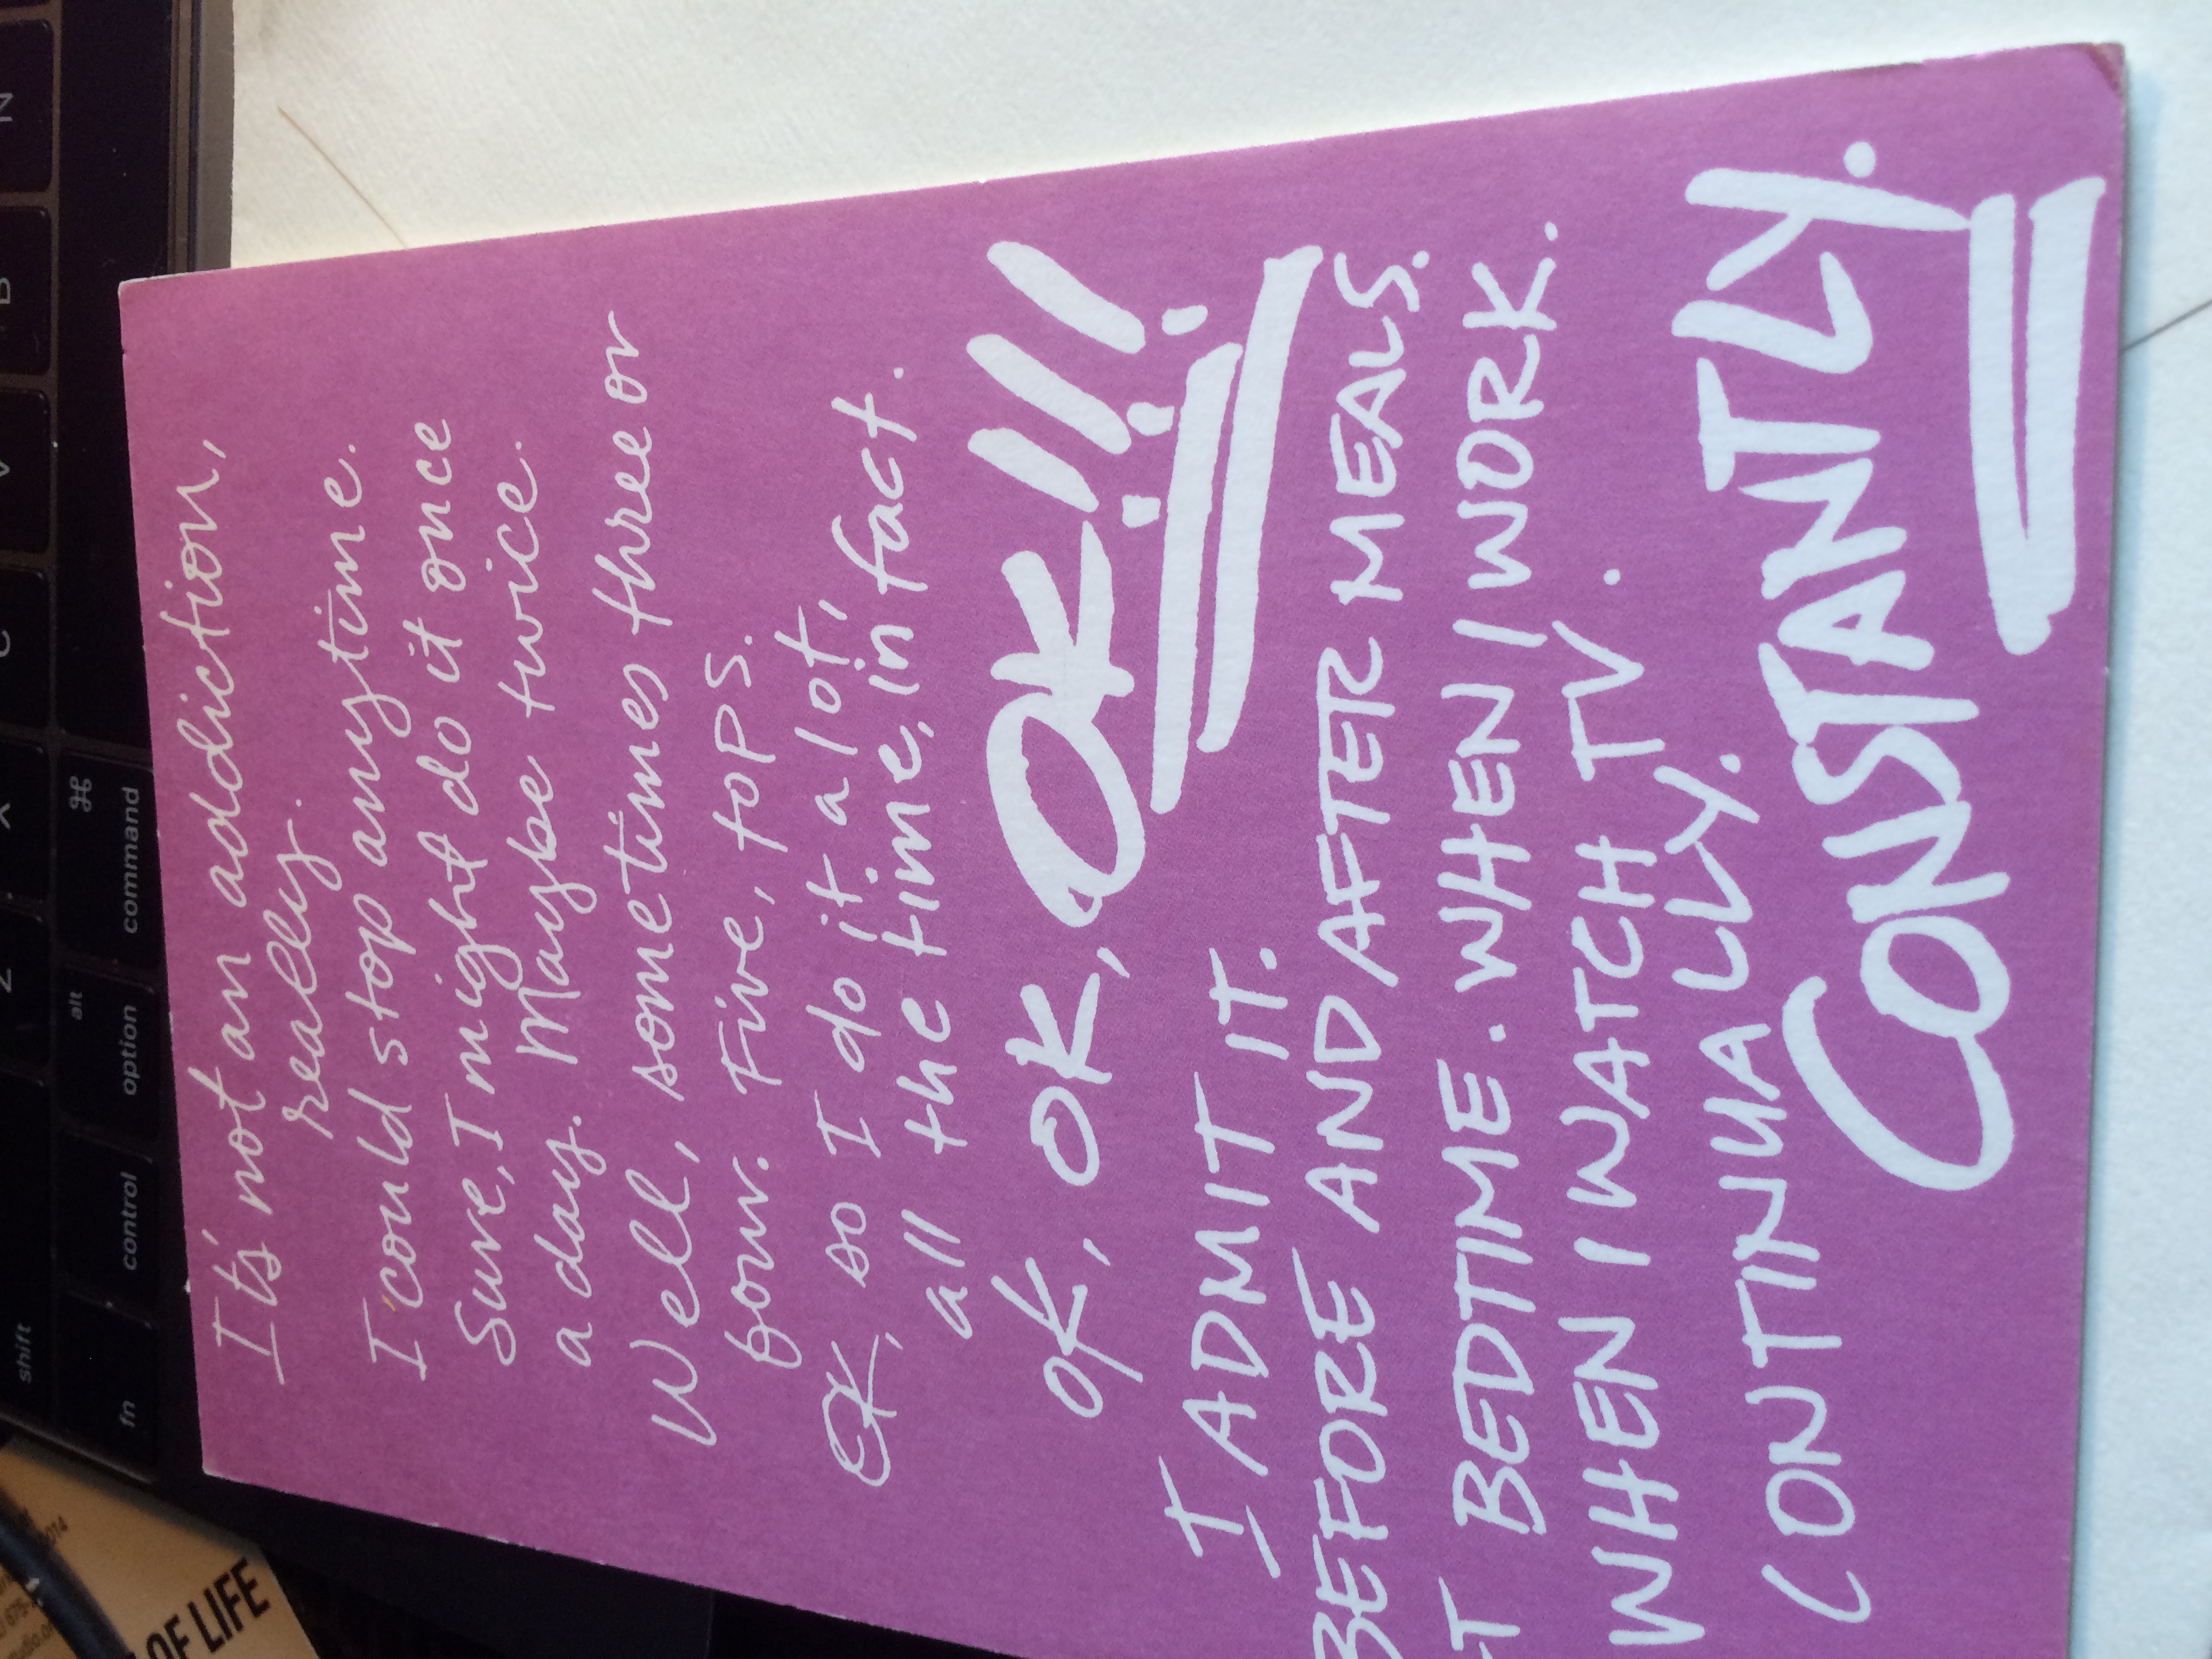 It's not an addiction,
really.
I could stop anytime.
Sure, I might do it once
a day. Maybe twice.
Well, sometimes three or
four. Five, tops.
OK, so I do it a lot,
all the time, in fact.
OK, OK, OK!!!
I ADMIT IT.
BEFORE AND AFTER MEALS.
T BEDTIME. WHEN I WORK.
WHEN I WATCH TV.
CONTINUALLY.
CONSTANTLY.
N
B
V
C
X
Z
shift
⌘
command
alt
option
control
fn
OF LIFE